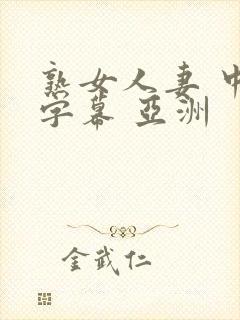 熟女人妻 中
字幕 亞洲
金武仁